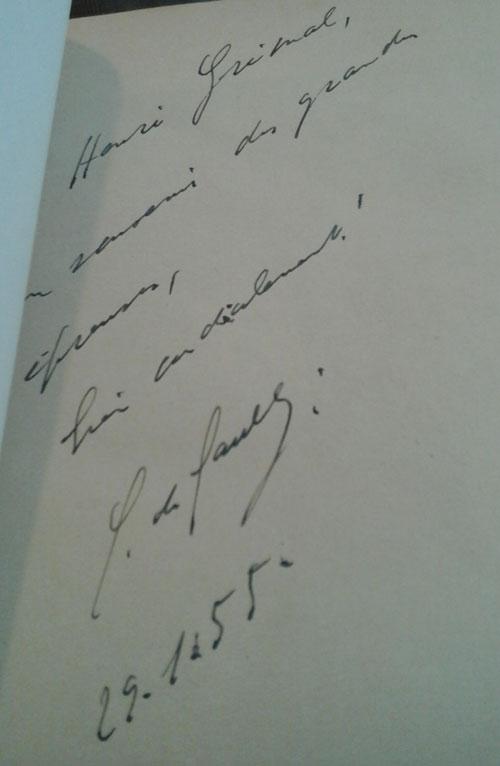 Henri Grimal,
en souvenir des grandes
épreuves,
bien cordialement !
C. de Gaulle.
29.1.55.